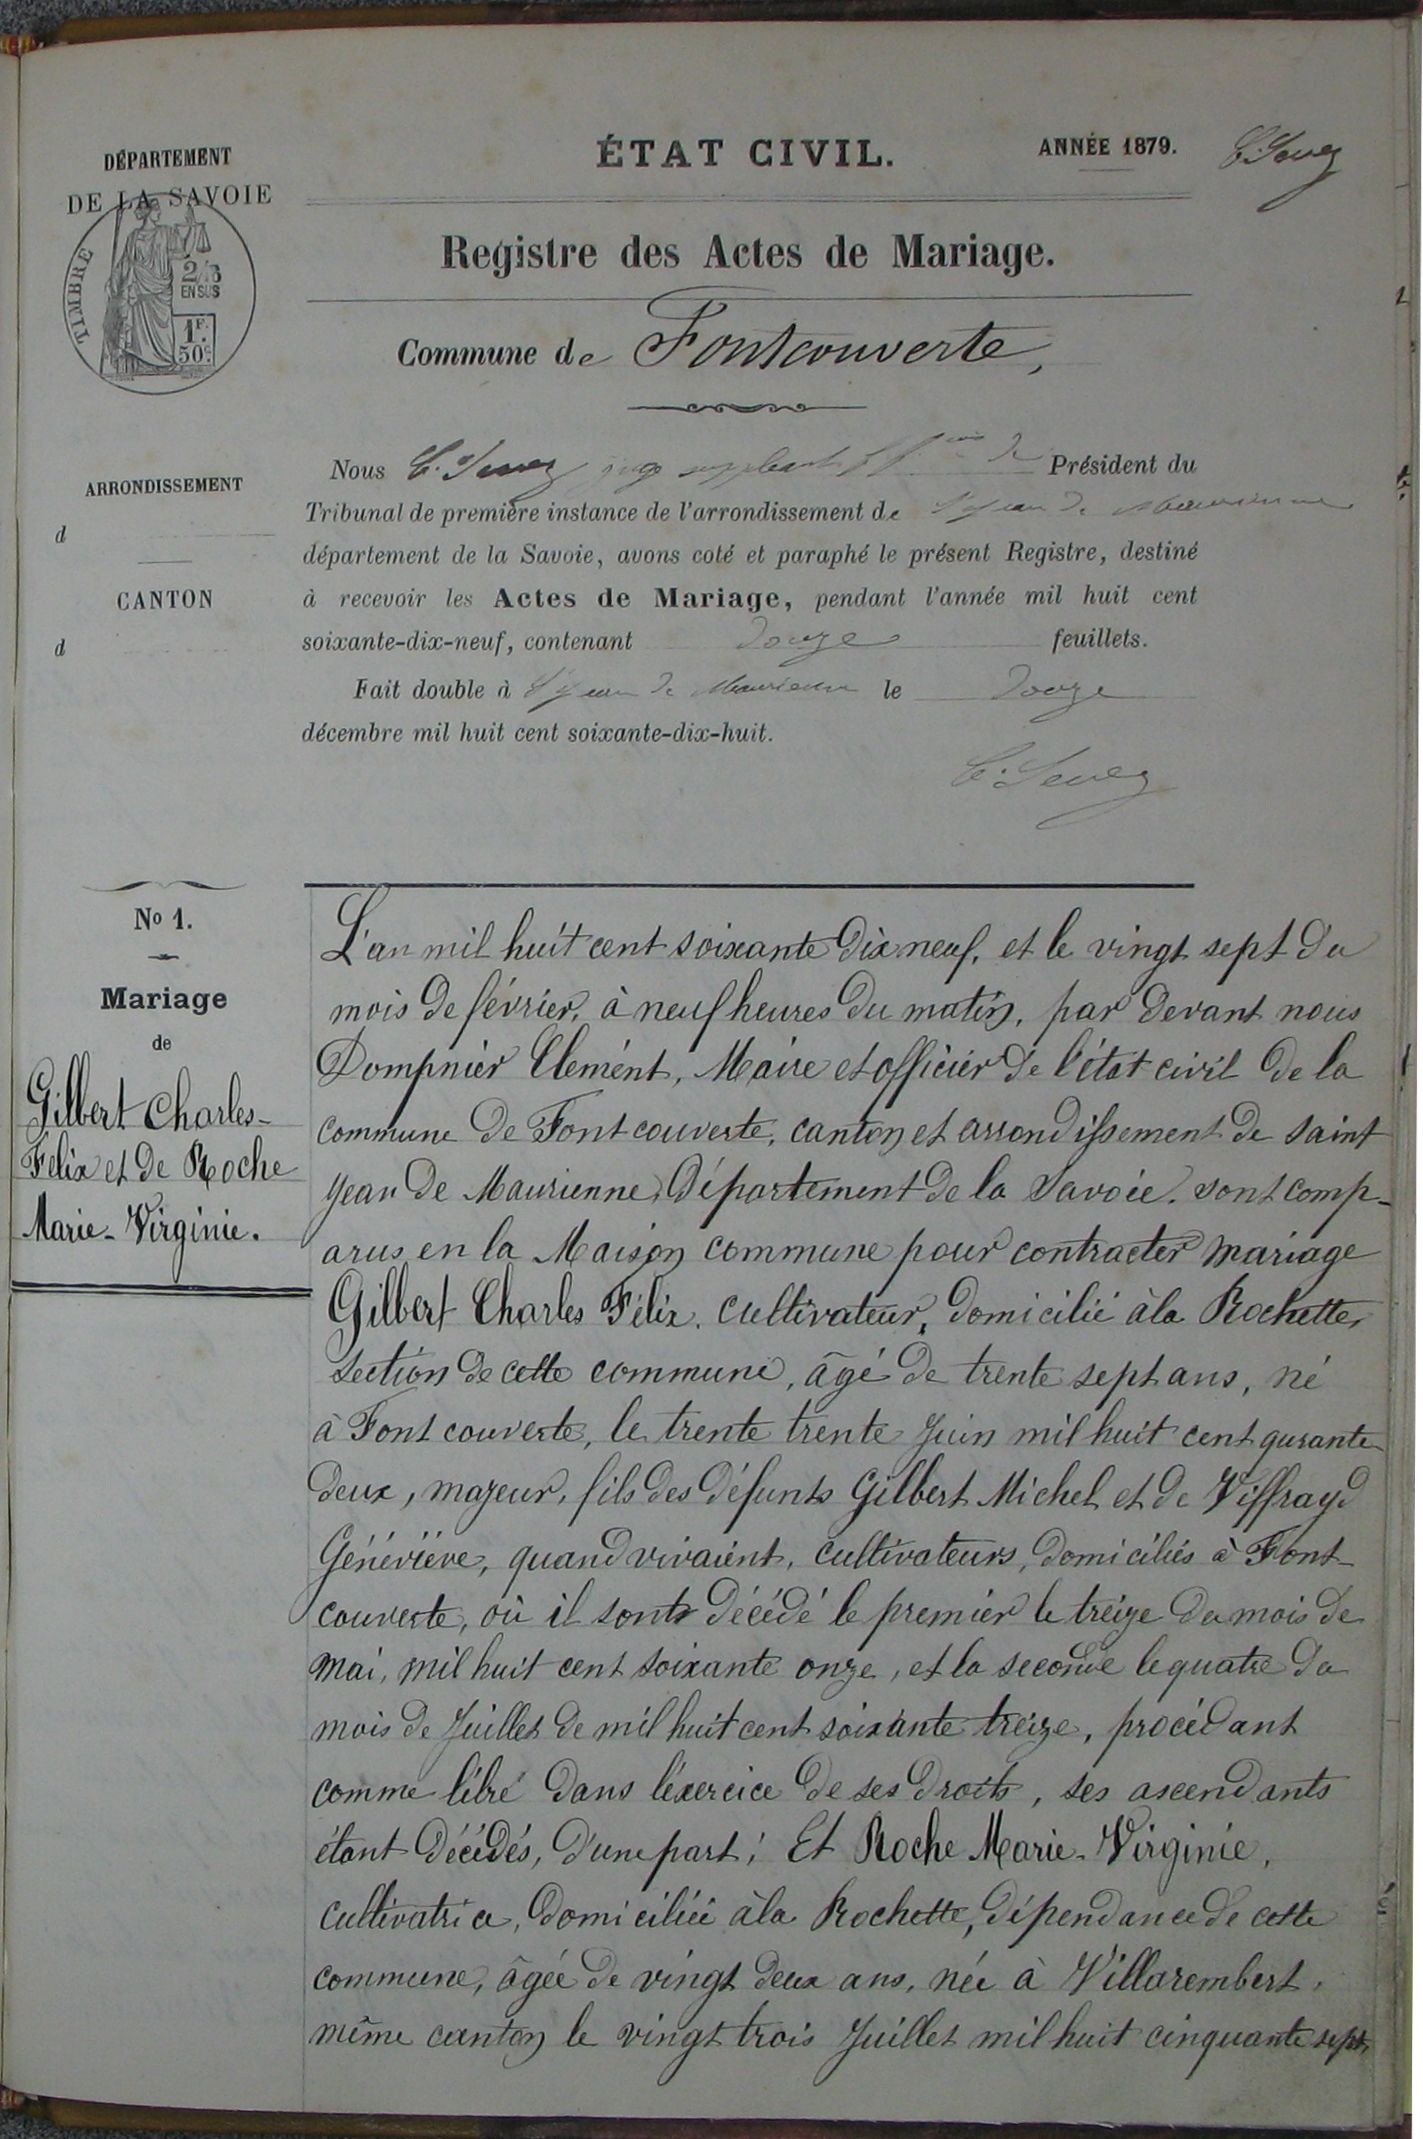 ÉTAT CIVIL.
ANNÉE 1879.
DÉPARTEMENT
DE LA SAVOIE
TIMBRE
2/10
EN SUS
1F.
50c.
Registre des Actes de Mariage.
Commune de Fontcouverte,
ARRONDISSEMENT
d
CANTON
d
Nous juge suppléant Président du
Tribunal de première instance de l'arrondissement de St Jean de Maurienne
département de la Savoie, avons coté et paraphé le présent Registre, destiné
à recevoir les Actes de Mariage, pendant l'année mil huit cent
soixante-dix-neuf, contenant douze feuillets.
Fait double à St Jean de Maurienne le douze
décembre mil huit cent soixante-dix-huit.
No 1.
Mariage
de
Gilbert Charles-
Felix et de Roche
Marie-Virginie.
L'an mil huit cent soixante dix neuf, et le vingt sept du
mois de février, à neuf heures du matin, par devant nous
Dompnier Clement, Maire et officier de l'état civil de la
commune de Fontcouverte, canton et arrondissement de Saint
Jean de Maurienne, Département de la Savoie. sont comp-
arus en la Maison commune pour contracter mariage
Gilbert Charles Félix, cultivateur, domicilié à la Rochette,
section de cette commune, âgé de trente sept ans, né
à Font couverte, le trente trente Juin mil huit cent qurante
deux, majeur, fils des défunts Gilbert Michel et de Viffrayd
Généviève, quand vivaient, cultivateurs, domiciliés à Font-
couverte, où il sont décédé le premier le treize du mois de
mai, mil huit cent soixante onze, et la seconde le quatre du
mois de Juillet de mil huit cent soixante treize, procédant
comme libre dans l'exercice de ses droits, ses ascendants
étant décédés, d'une part; Et Roche Marie-Virginie,
cultivatrice, domiciliée à la Rochette, dépendance de cette
commune, âgée de vingt deux ans, née à Villarembert,
même canton le vingt trois Juillet mil huit cinquante sept,